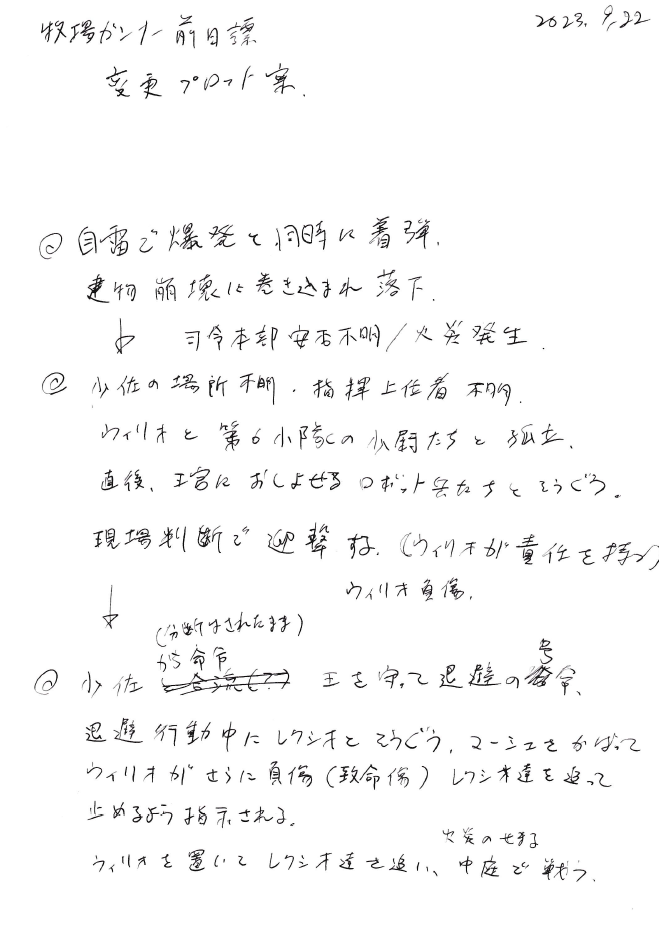 2023.9.22
牧場ガンナー前日譚
変更プロット案.
@ 自雷で爆発と同時に着弾.
建物崩壊に巻き込まれ落下.
↓ 司令本部安否不明/火災発生.
@ 少佐の場所不明・指揮上位者不明.
ウィリオと第6小隊の少尉たちと孤立.
直後、王宮におしよせるロボット兵たちとそうぐう。
現場判断で迎撃する.(ウィリオが責任を持つ)
ウィリオ負傷.
↓
(分断はされたまま)
から命令
@ 少佐 合流(?) 王を守って退避の号令、
退避行動中にレクシオとそうぐう、マーシェをかばって
ウィリオがさらに負傷(致命傷) レクシオ達を追って
止めるよう指示される。
火災のせまる
ウィリオを置いてレクシオ達を追い、中庭で戦う.